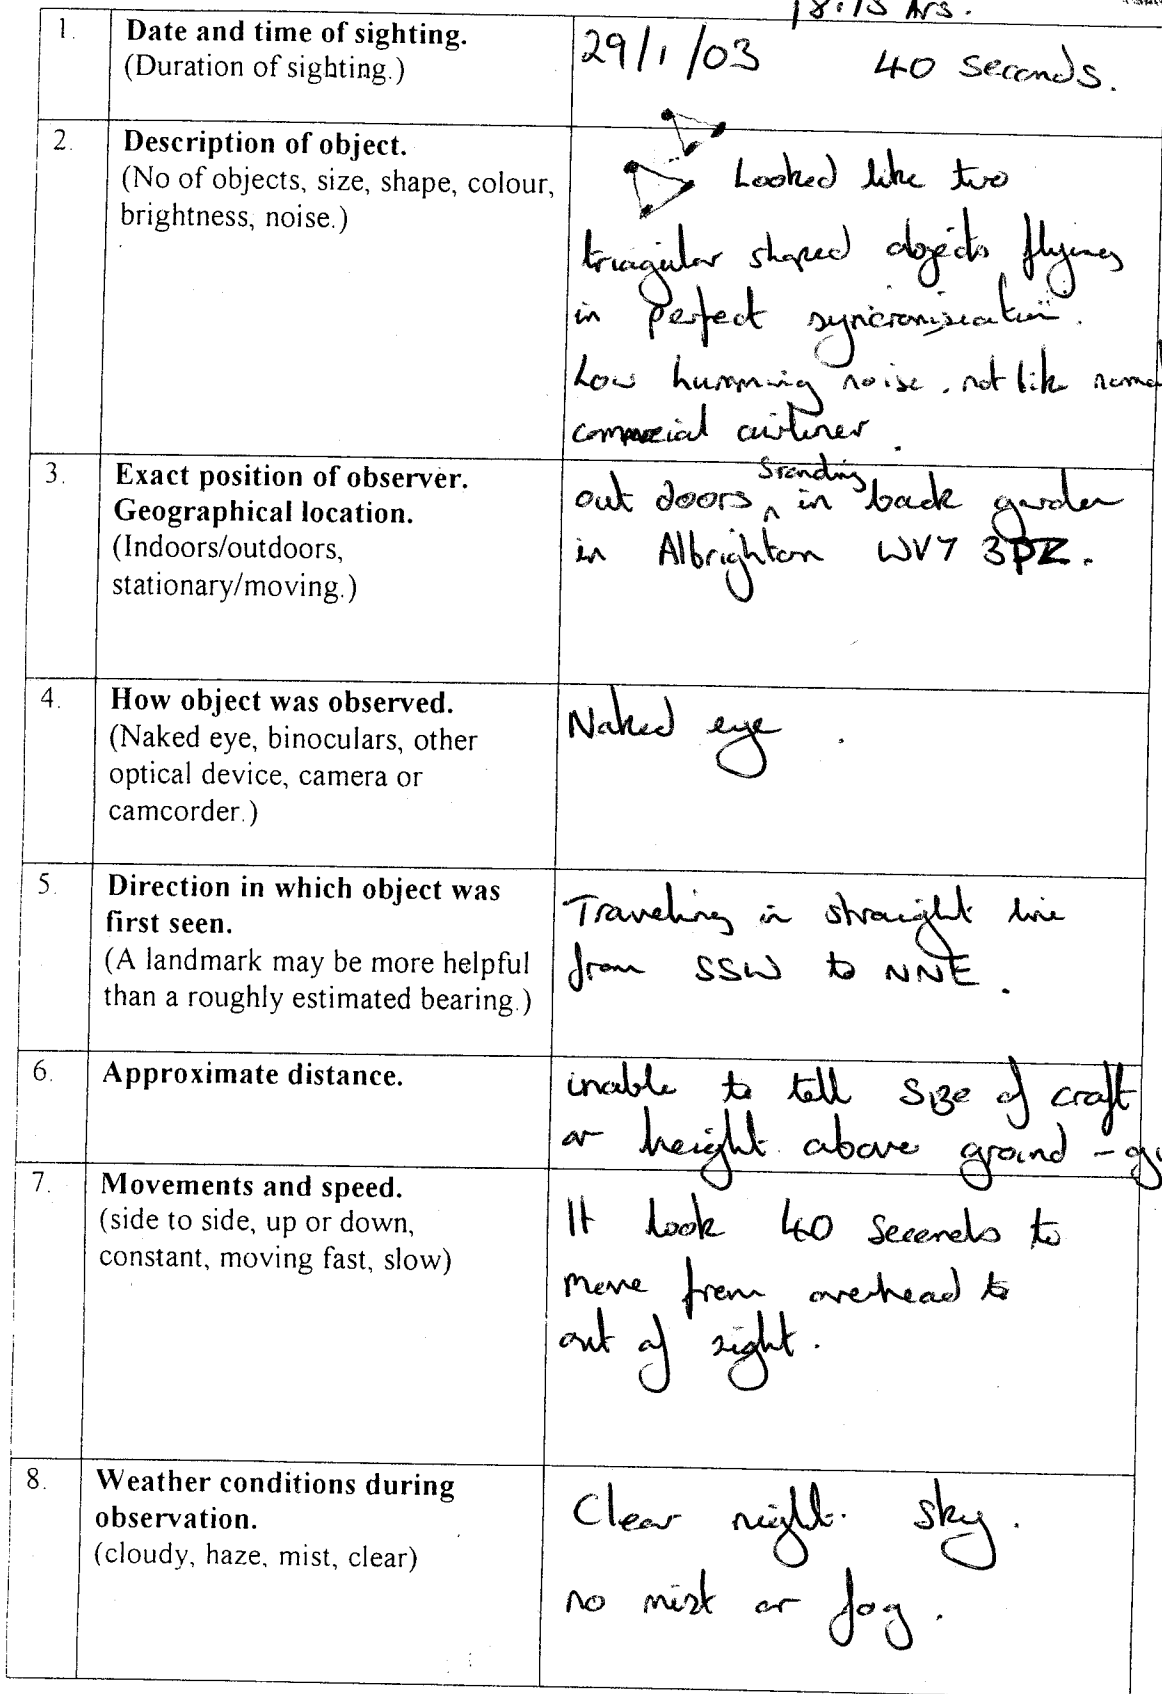 18:15 hrs.
1. Date and time of sighting.
(Duration of sighting.)
29/1/03 40 seconds.
2. Description of object.
(No of objects, size, shape, colour,
brightness, noise.)
Looked like two
triagular shaped objects flying
in perfect syncronisication.
Low humming noise. not like
commercial airliner.
3. Exact position of observer.
Geographical location.
(Indoors/outdoors,
stationary/moving.)
out doors standing in back garden
in Albrighton WV7 3PZ.
4. How object was observed.
(Naked eye, binoculars, other
optical device, camera or
camcorder.)
Naked eye.
5. Direction in which object was
first seen.
(A landmark may be more helpful
than a roughly estimated bearing.)
Traveling in straight line
from SSW to NNE.
6. Approximate distance.
inable to tell size of craft
or height above ground -
7. Movements and speed.
(side to side, up or down,
constant, moving fast, slow)
It took 40 seconds to
move from overhead to
out of sight.
8. Weather conditions during
observation.
(cloudy, haze, mist, clear)
Clear night. sky.
no mist or fog.